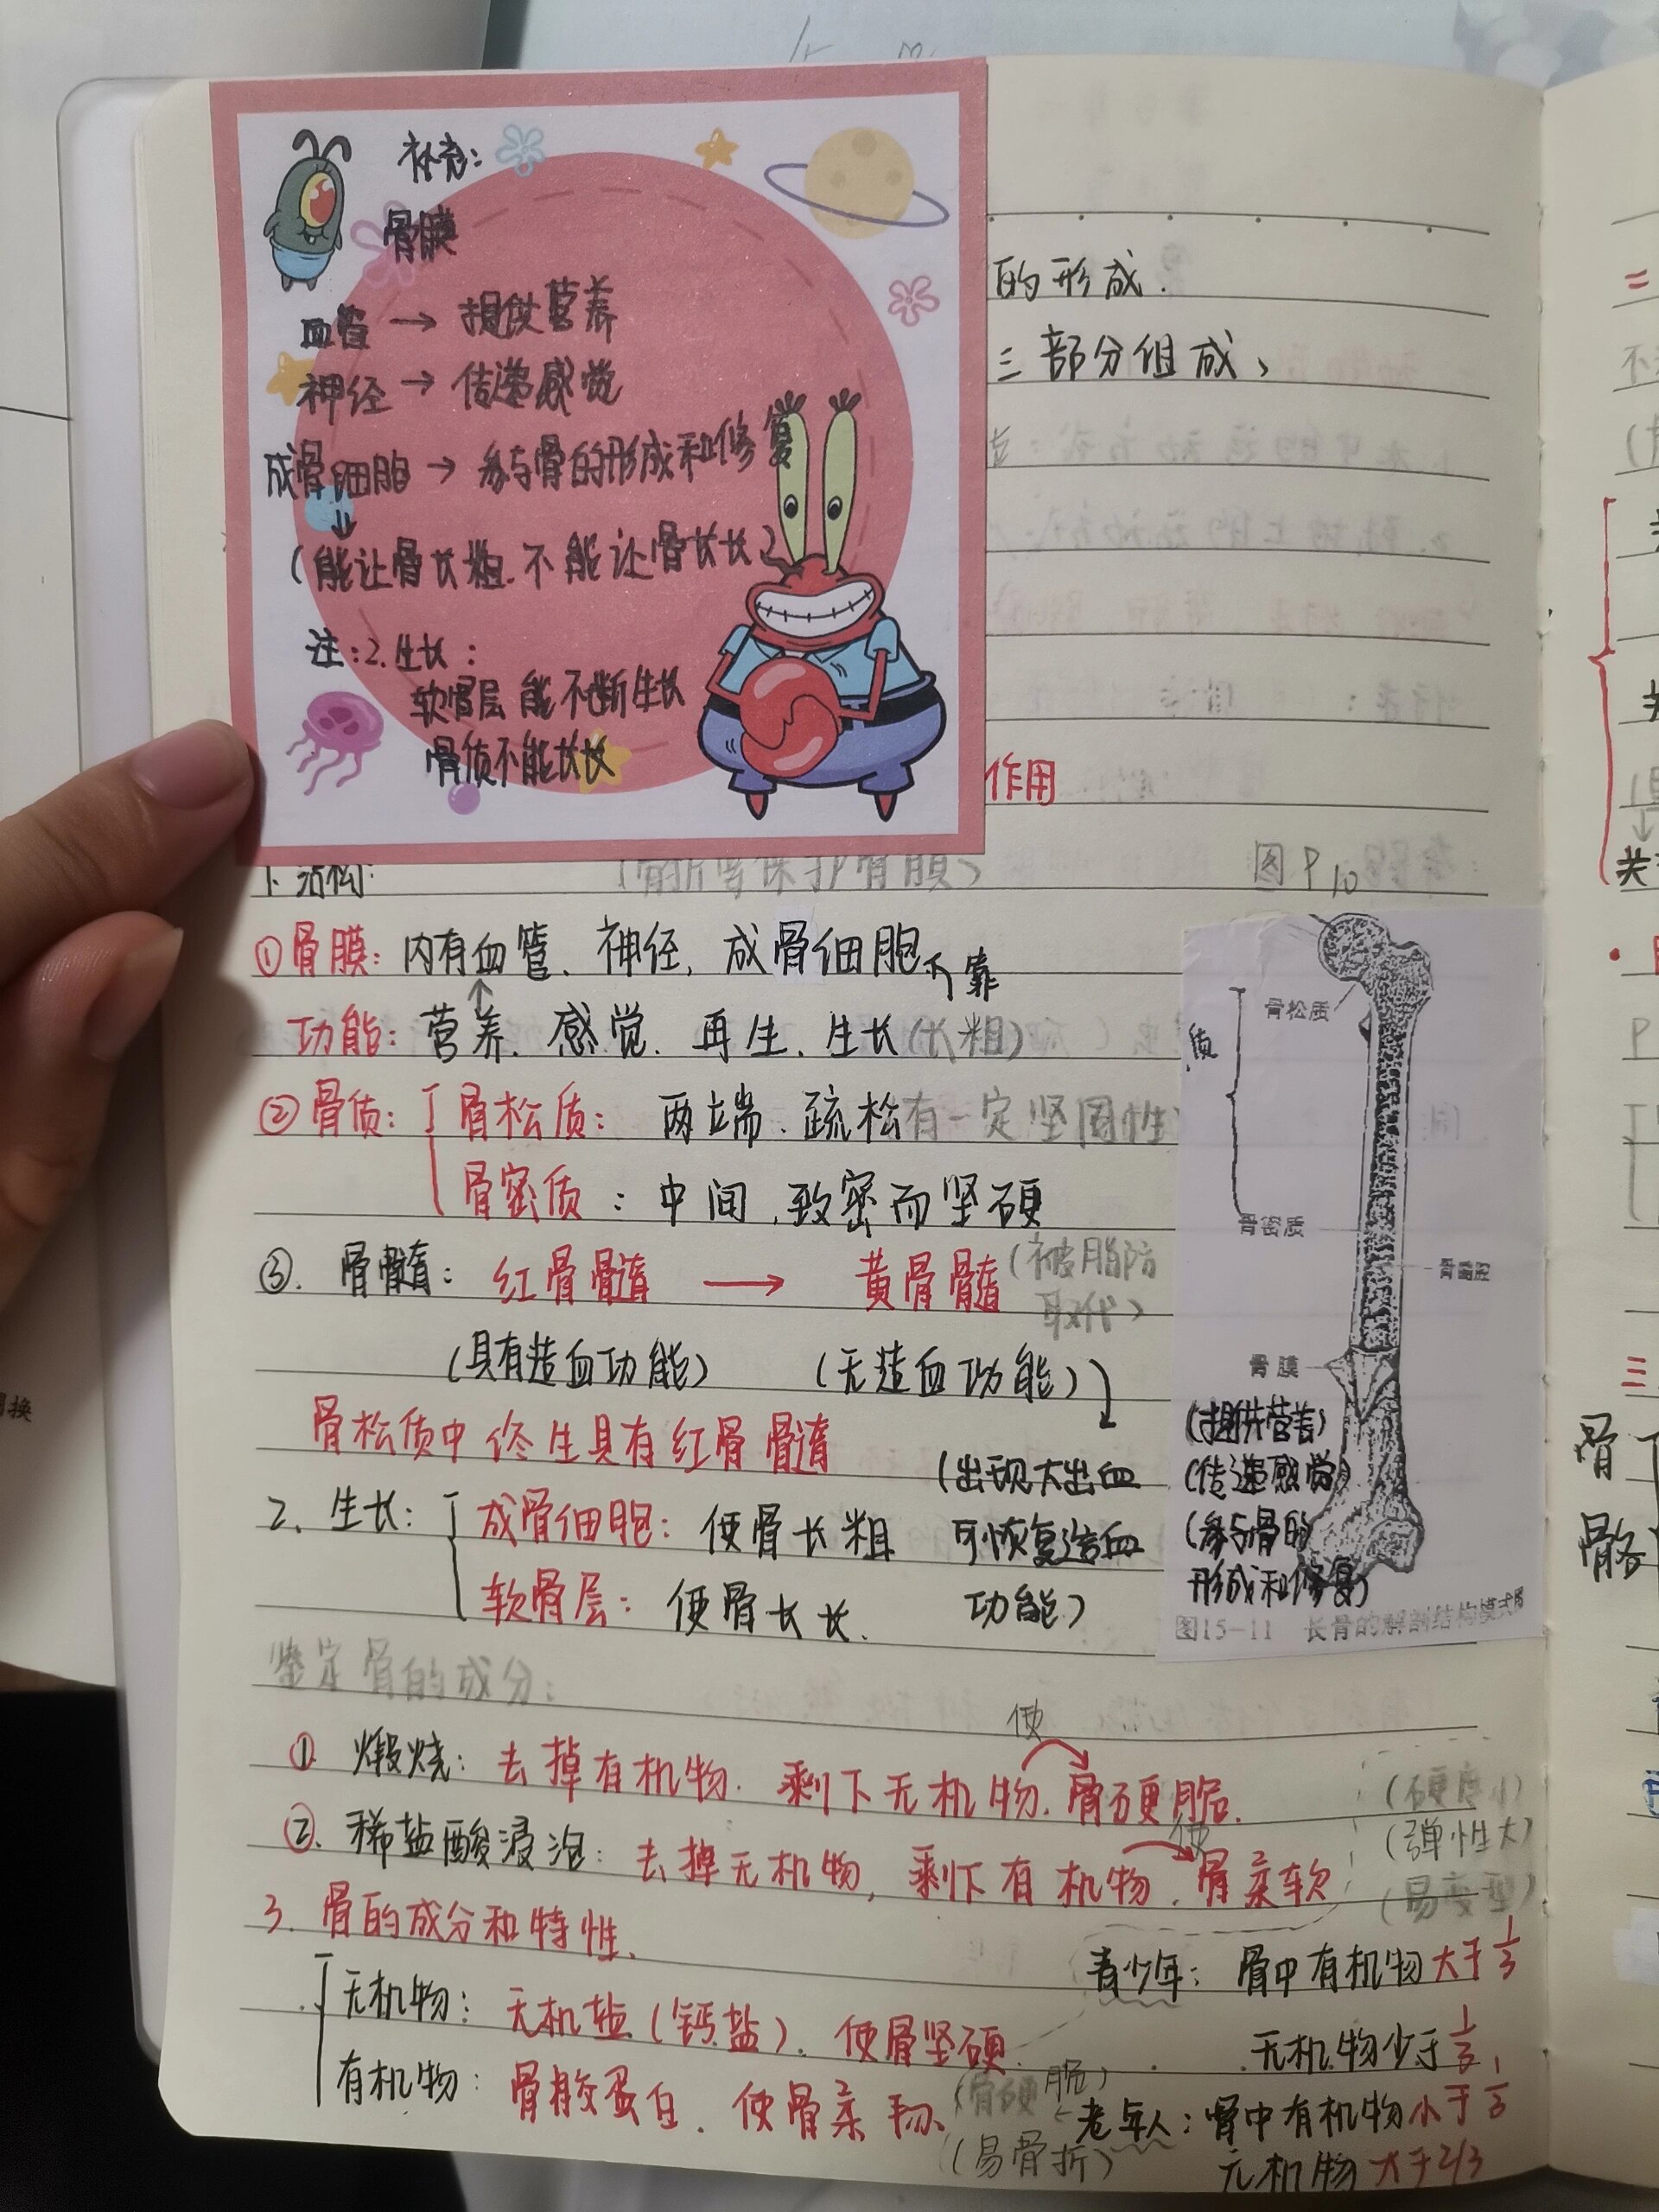 补充:
骨膜
血管 → 提供营养
神经 → 传递感觉
成骨细胞 → 参与骨的形成和修复
↓
(能让骨长粗.不能让骨长长)
注:2.生长:
软骨层能不断生长
骨质不能长长
的形成.
三部分组成、
作用
1.结构: (骨折需保护骨膜) 图P10
①骨膜: 内有血管、神经, 成骨细胞 靠
↑
功能: 营养、感觉、再生、生长(长粗)
②骨质: 骨松质: 两端、疏松有一定坚固性
骨密质: 中间,致密而坚硬
③. 骨髓: 红骨髓 → 黄骨髓(被脂肪
取代)
(具有造血功能) (无造血功能)
骨松质中终生具有红骨髓
(出现大出血
可恢复造血
功能)
2. 生长: 成骨细胞: 使骨长粗
软骨层: 使骨长长.
质
骨松质
骨密质
骨髓腔
骨膜
(提供营养)
(传递感觉)
(参与骨的
形成和修复)
图15-11 长骨的解剖结构模式图
鉴定骨的成分:
使
① 煅烧: 去掉有机物. 剩下无机物.骨硬脆.
使
②. 稀盐酸浸泡: 去掉无机物, 剩下有机物.骨柔软
(硬度小)
(弹性大)
(易变型)
3. 骨的成分和特性.
无机物: 无机盐(钙盐). 使骨坚硬.
有机物: 骨胶蛋白. 使骨柔韧.
青少年: 骨中有机物大于1/3
无机物少于2/3
(骨硬脆)
(易骨折)
←老年人: 骨中有机物小于1/3
无机物大于2/3
关
骨
骼
二
三